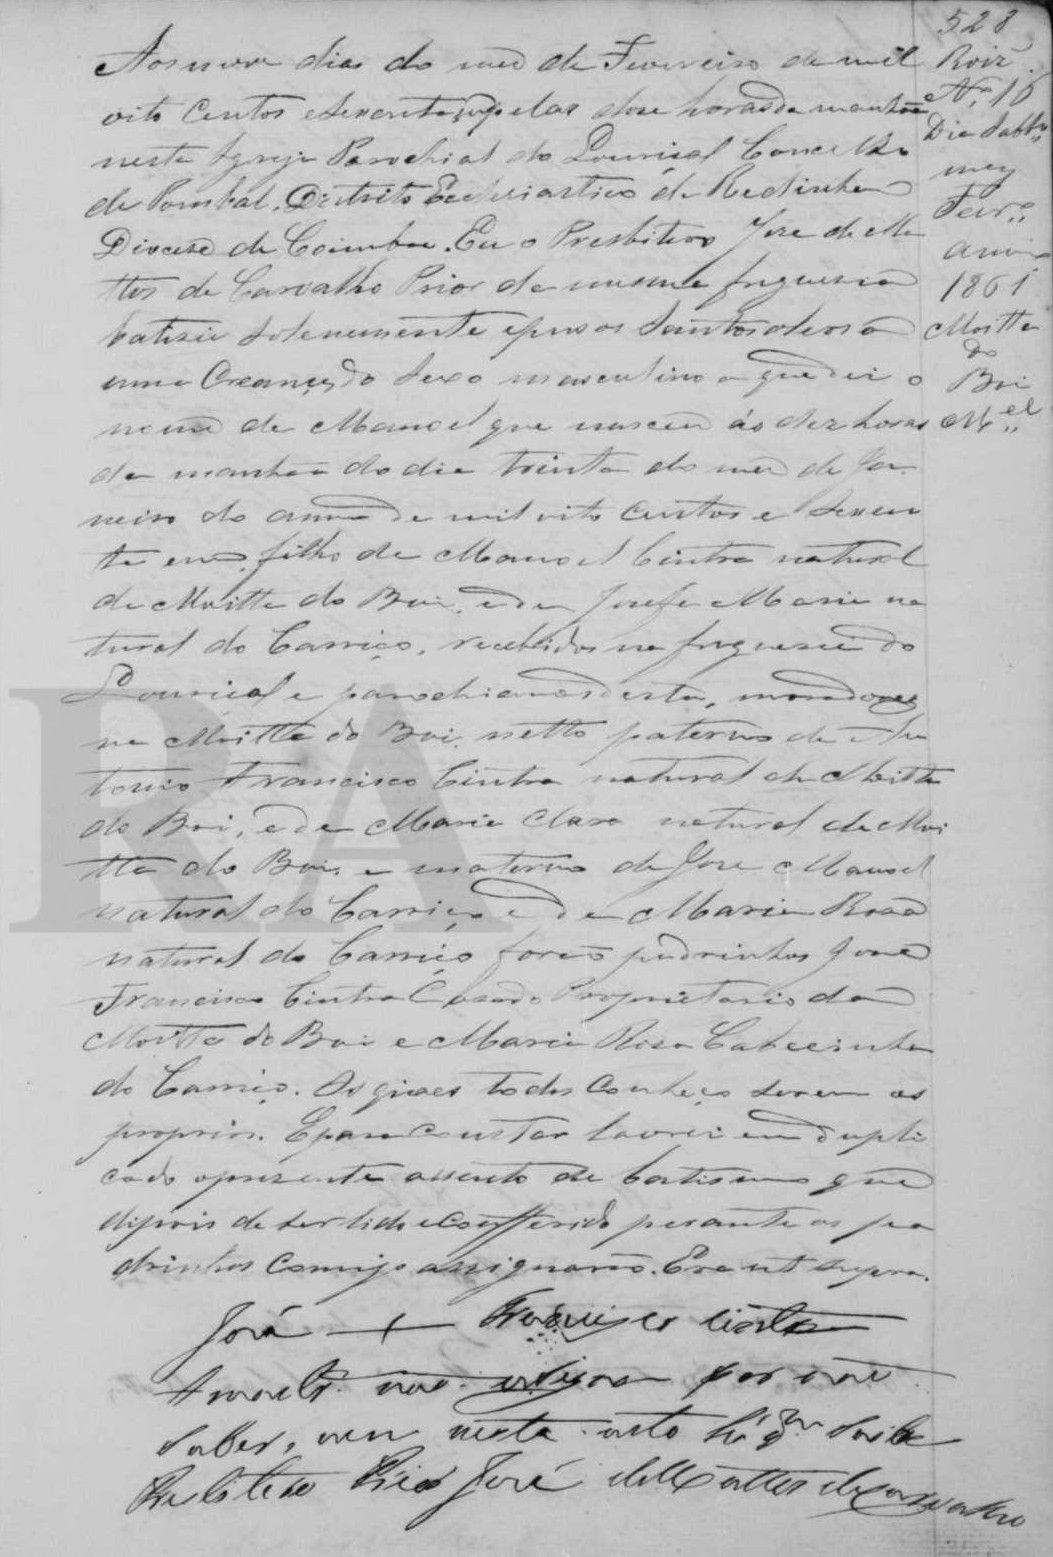 528
Roiz
Nº 16
Dia Sabbº
mez
Fevrº
anno
1861
Moitta
do
Boi
Mel
Aos nove dias do mez de Fevereiro de mil
oito centos e sessenta pelas dose horas da manhãa
nesta Igreja Parochial do Louriçal Concelho
de Pombal, Districto Ecclesiastico de Redinha
Diocese de Coimbra. Eu o Presbitero Jose de Ma
ttos de Carvalho Prior da mesma freguesia
batisei solenemente e pus os Santos oleos a
uma Creança do sexo masculino a que dei o
nome de Manoel que nasceu ás dez horas
da manhãa do dia trinta do mez de Ja
neiro do anno de mil oito centos e sessen
ta e um, filho de Manoel Cintra natural
da Moitta do Boi, e de Josefa Maria na
tural do Carriço, recebidos na freguesia do
Louriçal e parochianos desta, moradores
na Moitta do Boi, netto paterno de An
tonio Francisco Cintra natural da Moitta
do Boi, e de Maria Clara natural da Moi
tta do Boi, e materno de Jose Manoel
natural do Carriço e de Maria Rosa
natural do Carriço forão padrinhos José
Francisco Cintra Casado Proprietario da
Moitta do Boi e Maria Rosa Cabecinha
do Carriço. Os quaes todos conheço serem os
proprios. E para constar lavrei em dupli
cado o presente assento de batismo que
dipois de ser lido e conferido perante os pa
drinhos comigo assignarão. Era ut supra.
José + Francisco Cintra
A não asigna por não
saber, nem nesta acto há qm saiba
Presbitero Prior José de Mattos de Carvalho
RA